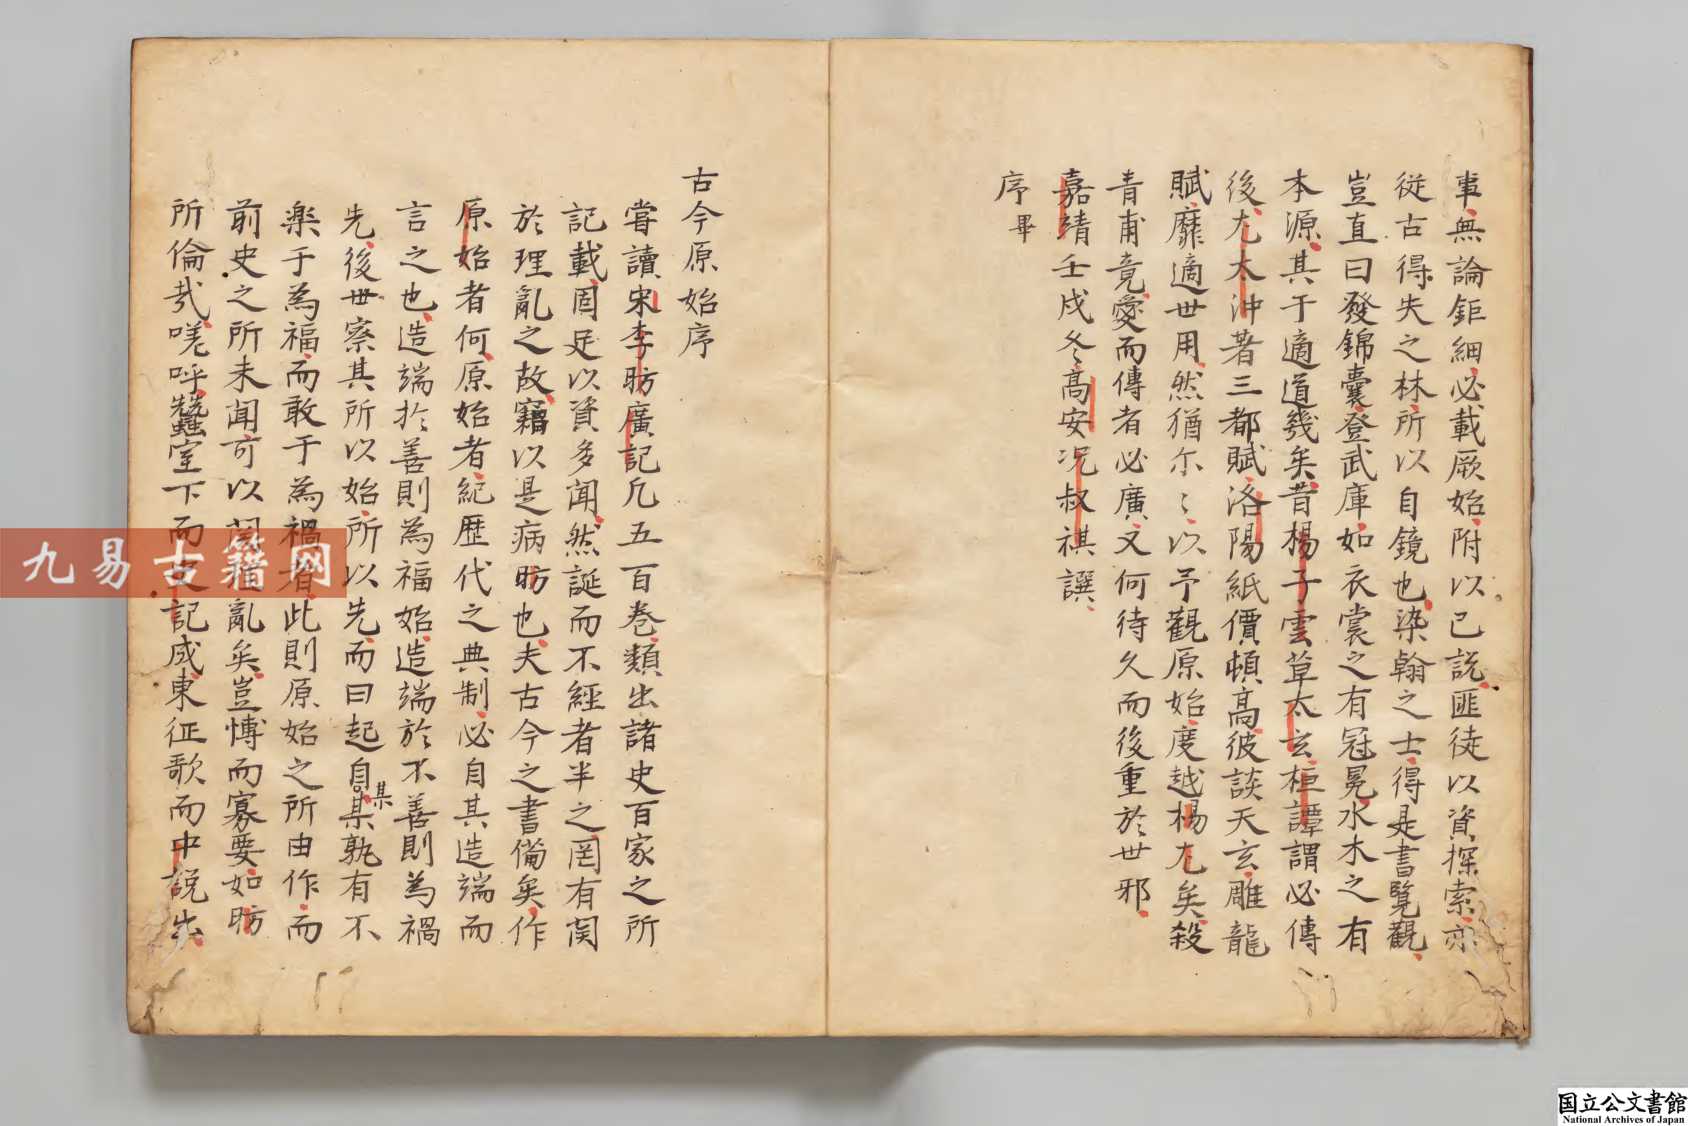 事無論鉅細必載厥始附以已説匪徒以資探索亦
從古得失之林所以自鏡也染翰之士得是書覽觀
豈直曰發錦囊登武庫如衣裳之有冠冕水木之有
本源其于適道幾矣昔楊子雲草太玄桓譚謂必傳
後尢太沖著三都賦洛陽紙價頓高彼談天玄雕龍
賦靡適世用然猶尓〻以予觀原始度越楊尢矣殺
青甫竟愛而傳者必廣又何待久而後重於世邪
嘉靖壬戌冬高安况叔祺譔
序畢
古今原始序
嘗讀宋李昉廣記凡五百卷類出諸史百家之所
記載固足以資多聞然誕而不經者半之罔有関
於理亂之故竊以是病昉也夫古今之書備矣作
原始者何原始者紀歴代之典制必自其造端而
言之也造端扵善則為福始造端於不善則為禍
先後世察其所以始所以先而曰起自某孰有不
某
楽于為福而敢于為禍者此則原始之所由作而
前史之所未聞可以亂矣豈愽而寡要如昉
所倫㢤嗟呼蠶室下而記成東征歌而中説出
九易古籍网
国立公文書館
National Archives of Japan